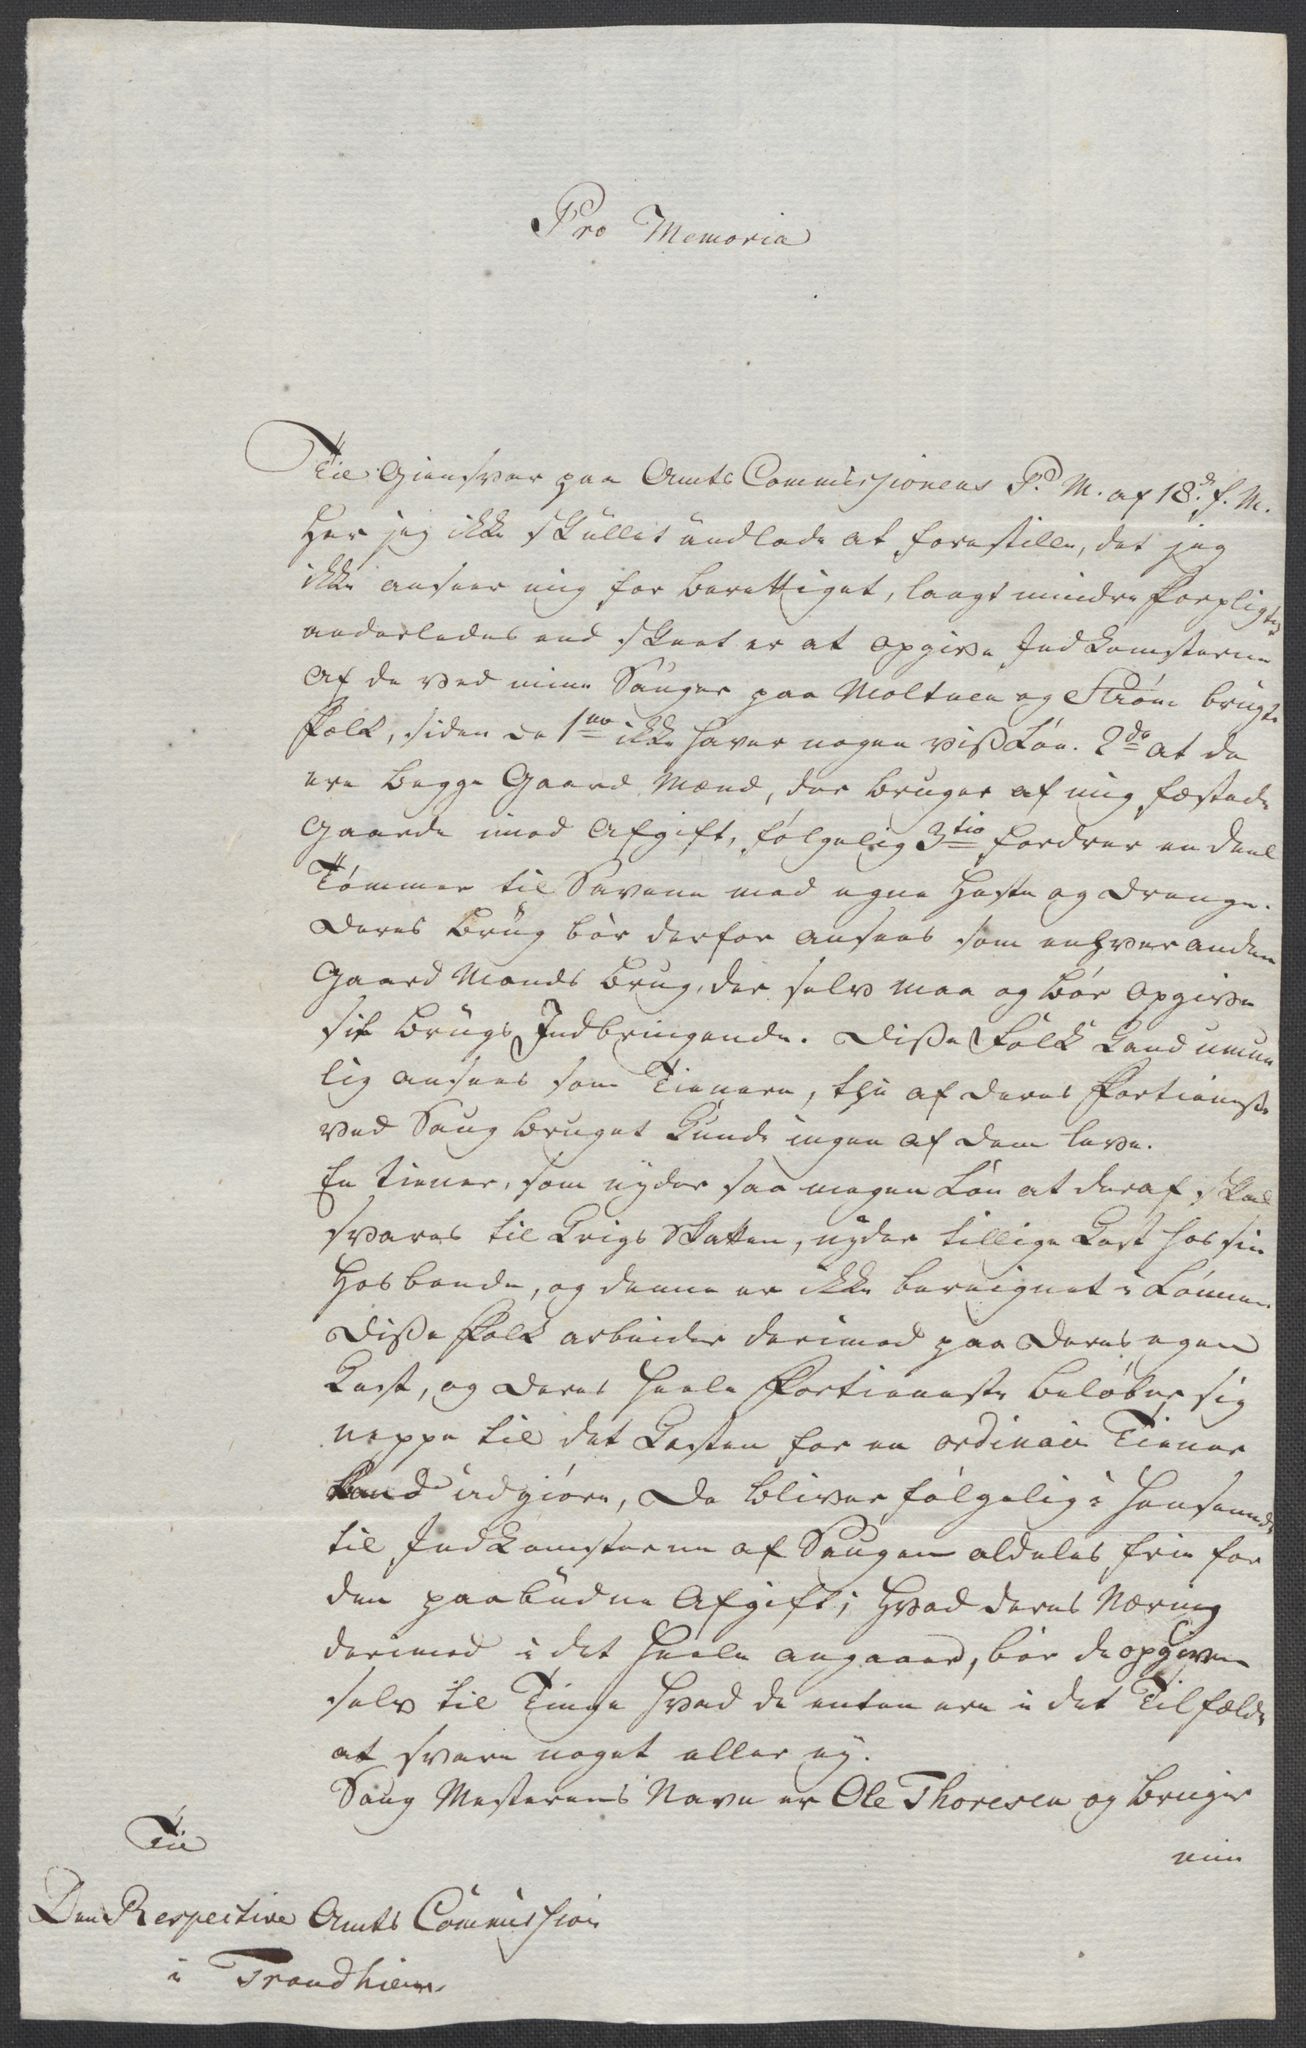 Pro Memoria
Til Giensvar paa Amts Commissionens P. M. af 18. f. M.
har jeg ikke skullet undlade at forestille, det jeg
ikke anseer mig for berettiget, langt mindre forpligtet
anderledes end skeet er at opgive Indkomsterne
af de ved mine Sauger paa Moltuen og Strøm brugte
Folk, siden de 1mo ikke haver nogen viss Løn. 2do at de
ere begge Gaard Mænd, der bruger af mig fæstede
Gaarde imod Afgift, følgelig 3tio fordrer en deel
Tømmer til Savene med egne Heste og Drenge.
Deres Brug bør derfor ansees som enhver anden
Gaard Mands Brug, der selv maa og bør opgive
sit Brugs Indbringende. Disse Folk kand umue
lig ansees som Tienere, thi af deres Fortieneste
ved Saug Bruget kunde ingen af dem leve.
En Tiener, som nyder saa megen Løn at deraf skal
svares til Krigs Skatten, nyder tillige Kost hos sin
Hosbonde, og denne er ikke beregnet i Lønnen
Disse Folk arbeider derimod paa deres egen
Kost, og deres heele Fortieneste beløber sig
neppe til det Kosten for en ordinair Tiener
kand udgiøre, De bliver følgelig i Henseende
til Indkomsterne af Saugen aldeles frie for
den paabudne Afgift; hvad deres Næring
derimod i det heele angaaer, bør de opgive
selv til Tinge hvad de enten ere i det Tilfælde
at svare noget eller ey.
Saug Mesterens Navn er Ole Thoresen og bruger
min
Til
Den Respective Amts Commission
i Trondhiem